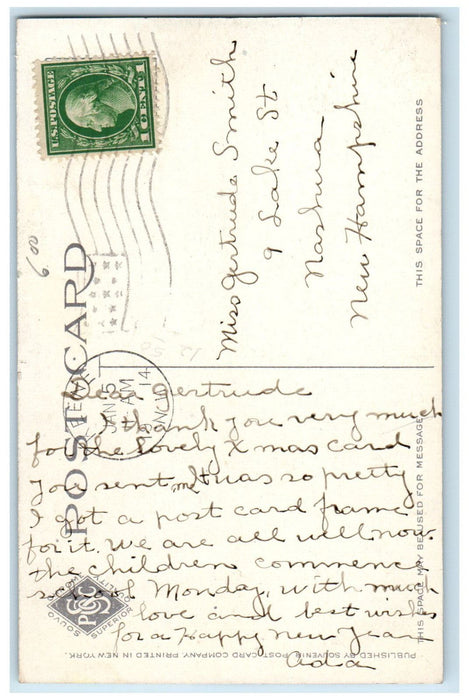 U.S. POSTAGE
1 CENT 1
POST CARD
THIS SPACE FOR THE ADDRESS
Miss Gertrude Smith
9 Lake St
Nashua
New Hampshire
6 00
JAN 5
AM
14
Dear Gertrude
I thank you very much
for the lovely Xmas card
you sent me. It was so pretty
I got a post card frame
for it. We are all well now.
the children commence
school Monday, with much
love and best wishes
for a Happy New Year
Ada
THIS SPACE MAY BE USED FOR MESSAGE
PUBLISHED BY SOUVENIR POST CARD COMPANY. PRINTED IN NEW YORK.